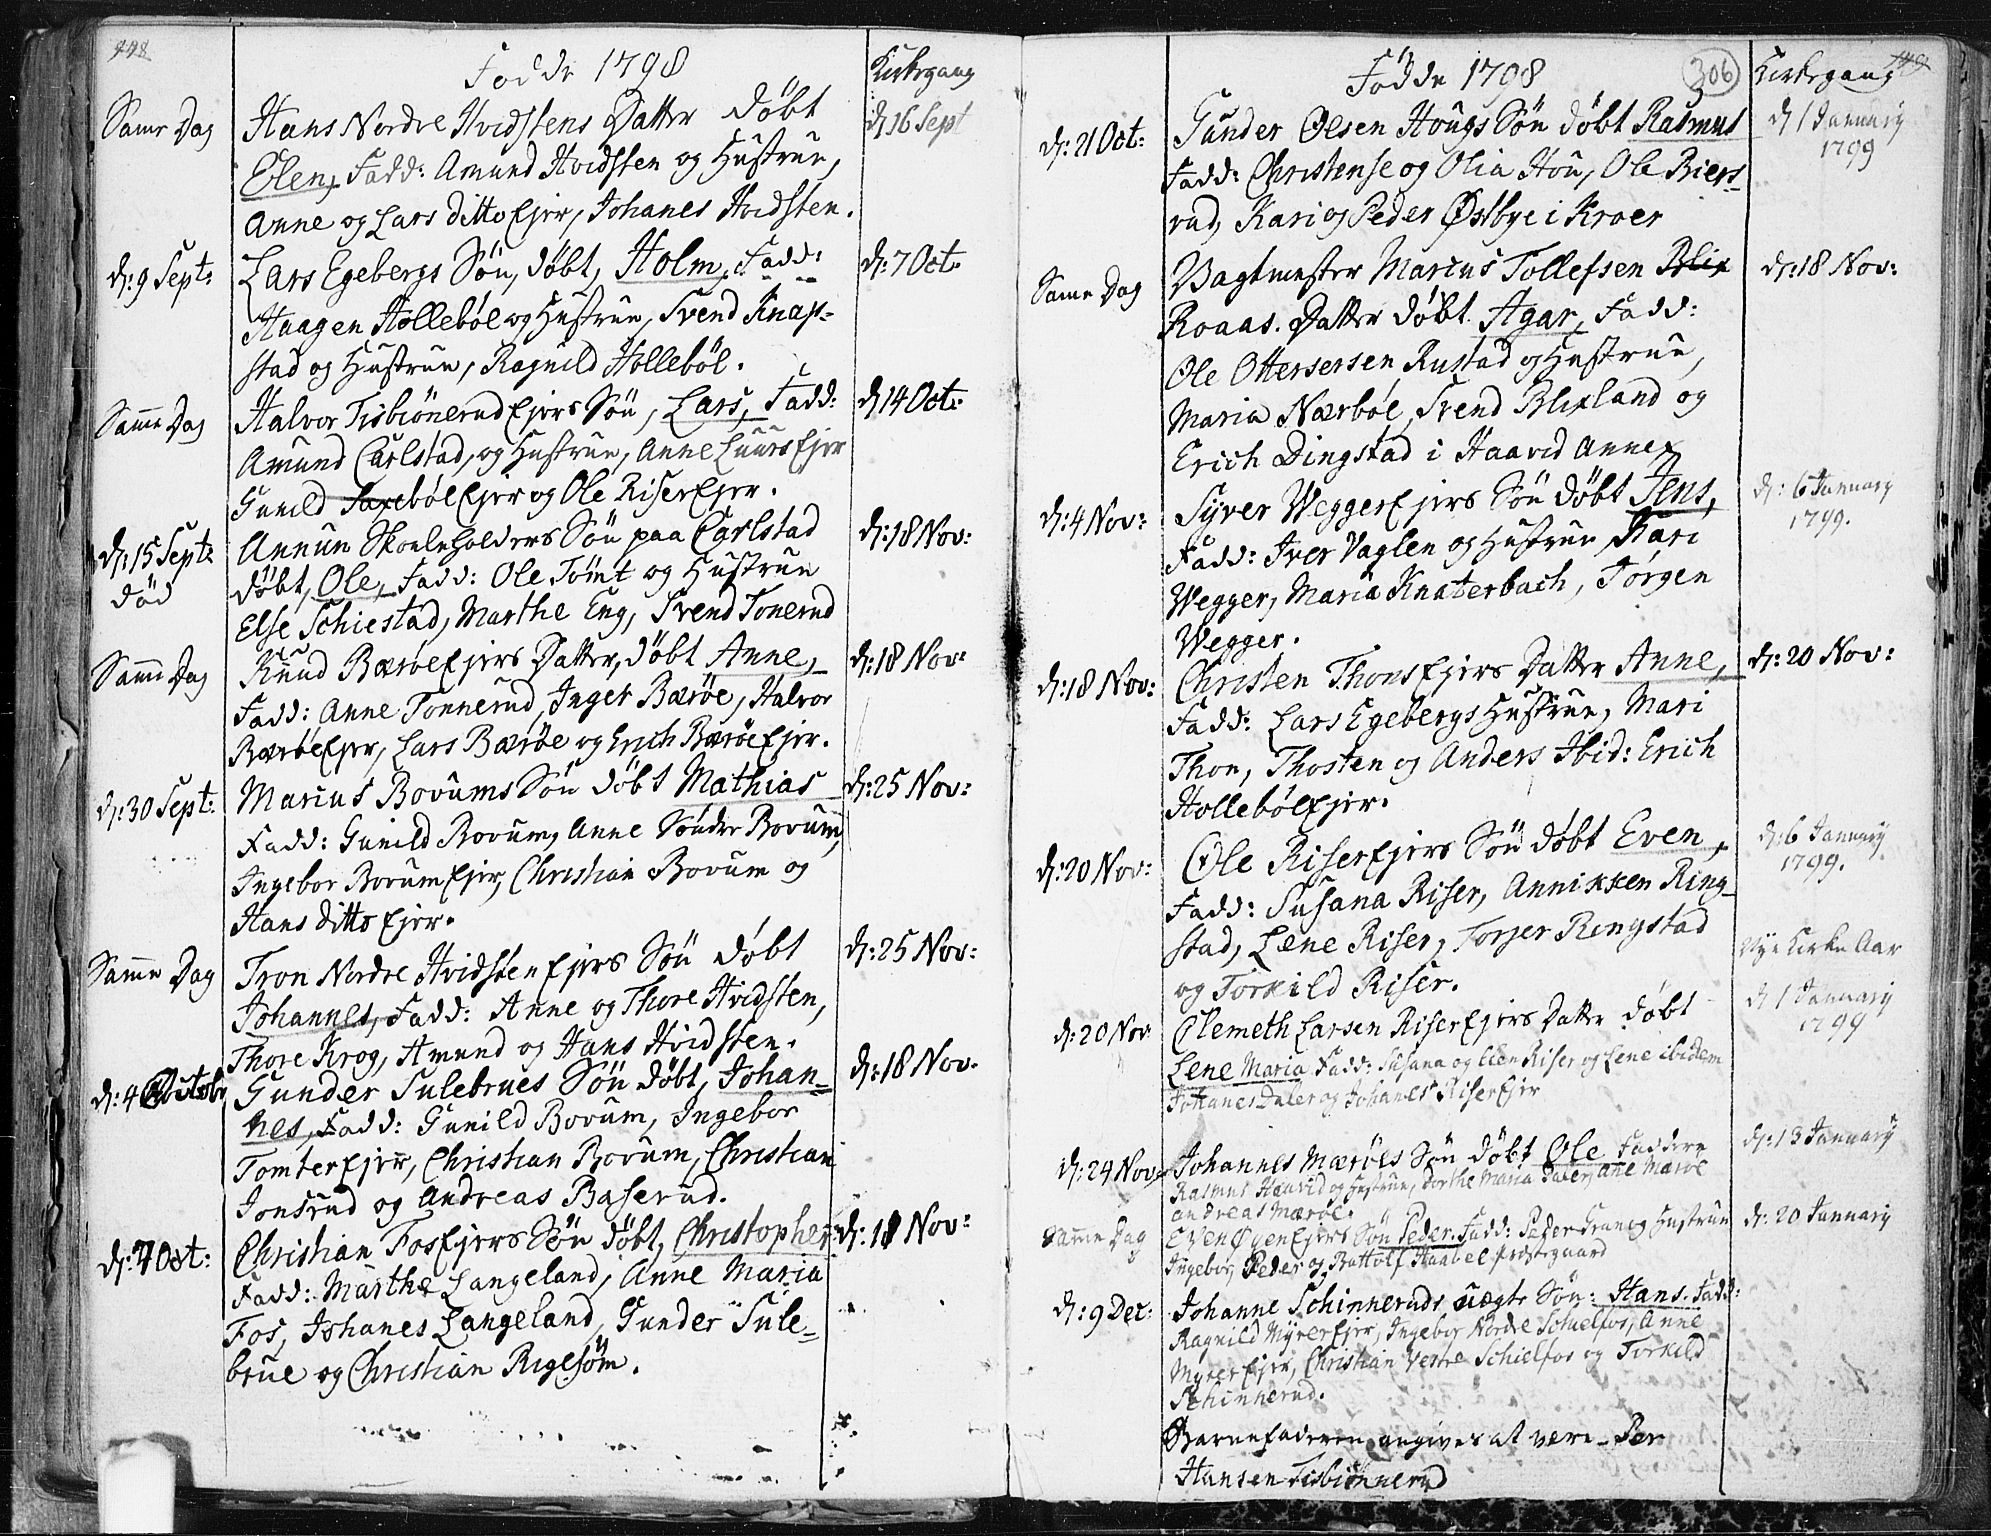 448
Fødde 1798
Kirkegang
Samme Dag
Hans Nordre Hvidstens Datter døbt
d. 16 Sept
Elen, Fadd: Amund Hvidsten og Hustrue,
Anne og Lars ditto Ejer, Johanes Hvidsten.
d: 9 Sept:
Lars Egebergs Søn, døbt, Holm, Fadd:
d: 7 Oct:
Haagen Hollebøl og Hustrue, Svend Knap-
stad og Hustrue, Ragnild Hollebøl.
Samme Dag
Halvor Tisbiønerud Ejers Søn, Lars, Fadd:
d 14 Oct:
Amund Carlstad, og Hustrue, Anne Luurs Ejer
Gunild Saxebøl Ejer og Ole Riser Ejer.
d: 15 Sept:
død
Annun Skoeleholders Søn paa Carlstad
d: 18 Nov:
døbt, Ole, Fadd: Ole Tømt og Hustrue
Else Schiestad, Marthe Eng, Svend Tonerud
Samme Dag
Knud Bærøe Ejers Datter, døbt Anne,
d: 18 Nov:
Fadd: Anne Tonnerud, Inger Bærøe, Halvor
Bærøe Ejer, Lars Bærøe og Erich Bærøe Ejer.
d: 30 Sept:
Marcus Bovums Søn døbt Mathias
d: 25 Nov:
Fadd: Gunild Bovum, Anne Søndre Bovum,
Ingebor Bovum Ejer, Christian Bovum og
Hans ditto Ejer.
Samme Dag
Tron Nordre Hvidsten Ejers Søn døbt
d: 25 Nov:
Johannes, Fadd: Anne og Thore Hvidsten,
Thore Krog, Amund og Hans Hvidsten.
d: 4 Octobr
Gunder Sulebrues Søn døbt, Johan-
d: 18 Nov.
nes, Fadd: Gunild Bovum, Ingebor
Tomter Ejer, Christian Bovum, Christian
Jonsrud og Andreas Baserud.
d: 7 Oct:
Christian Fos Ejers Søn døbt, Christopher
d: 18 Nov:
Fadd: Marthe Langeland, Anne Maria
Fos, Johanes Langeland, Gunder Sule-
brue og Christian Rigesøm.
Fødde 1798
306
Kirkegang
449
d: 21 Oct:
Gunder Olsen Hougs Søn døbt Rasmus
d 1 January
1799
Fadd: Christense og Olia Hou, Ole Biers-
rud, Kari og Peder Østbye i Kroer
Samme Dag
Vagtmester Marcus Tollefsen Blix
d: 18 Nov:
Roaas. Datter døbt Agar, Fadd:
Ole Ottersersen Rustad og Hustrue,
Maria Nærbøl, Svend Blixland og
Erich Dingstad i Haavid Annex
d: 4 Nov:
Syver Wegger Ejers Søn døbt Jens,
d: 6 January
1799.
Fadd: Iver Vaglen og Hustrue, Kari
Wegger, Maria Knaterbach, Jørgen
Wegger.
d: 18 Nov:
Christen Thons Ejers Datter Anne,
d: 20 Nov:
Fadd: Lars Egebergs Hustrue, Mari
Thon, Thosten og Anders Ibid: Erich
Hollebøl Ejer.
d: 20 Nov:
Ole Riser Ejers Søn døbt Even,
d: 6 January
1799.
Fadd: Susana Riser, Annikken Ring-
stad, Lene Riser, Torjer Ringstad
Nye Kirke Aar
og Torkild Riser.
d: 20 Nov
Clemeth Larsen Riser Ejers Datter døbt
d 1 January
1799
Lene Maria Fadd: Susana og Elen Riser og Lene ibidem
Johanes Daler og Johanes Riser Ejer
d: 24 Nov
Johannes Mærøes Søn døbt Ole Faddere
d: 13 January
Rasmus Haavid og Hustrue, Dorthe Maria Daler, Ane Mærøe
Andreas Mærøe.
Samme Dag
Even Øyen Ejers Søn Peder. Fadd: Peder Gran og Hustrue
d: 20 January
Ingebor, Peder og Battolf Haabel Præstegaard
d: 9 Dec:
Johanne Schinneruds uægte Søn: Hans. Fadd:
Ragnild Myrer Ejer, Ingebor Nordre Schielfos, Anne
Myrer Ejer, Christian Vestre Schielfos og Torkild
Schinnerud.
Barnefaderen angives at være Per
Hansen Tisbiønnerud